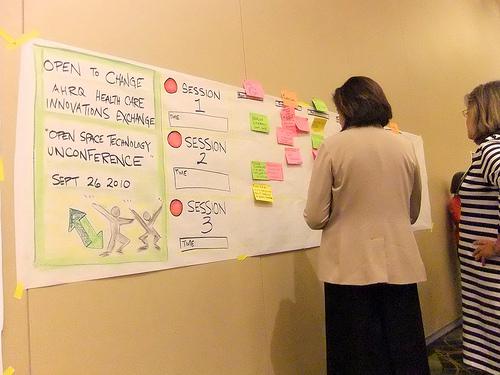 OPEN TO CHANGE
AHRQ HEALTH CARE
INNOVATIONS EXCHANGE
"OPEN SPACE TECHNOLOGY
UNCONFERENCE"
SEPT 26 2010
SESSION
1
TIME
SESSION
2
TIME
SESSION
3
TIME